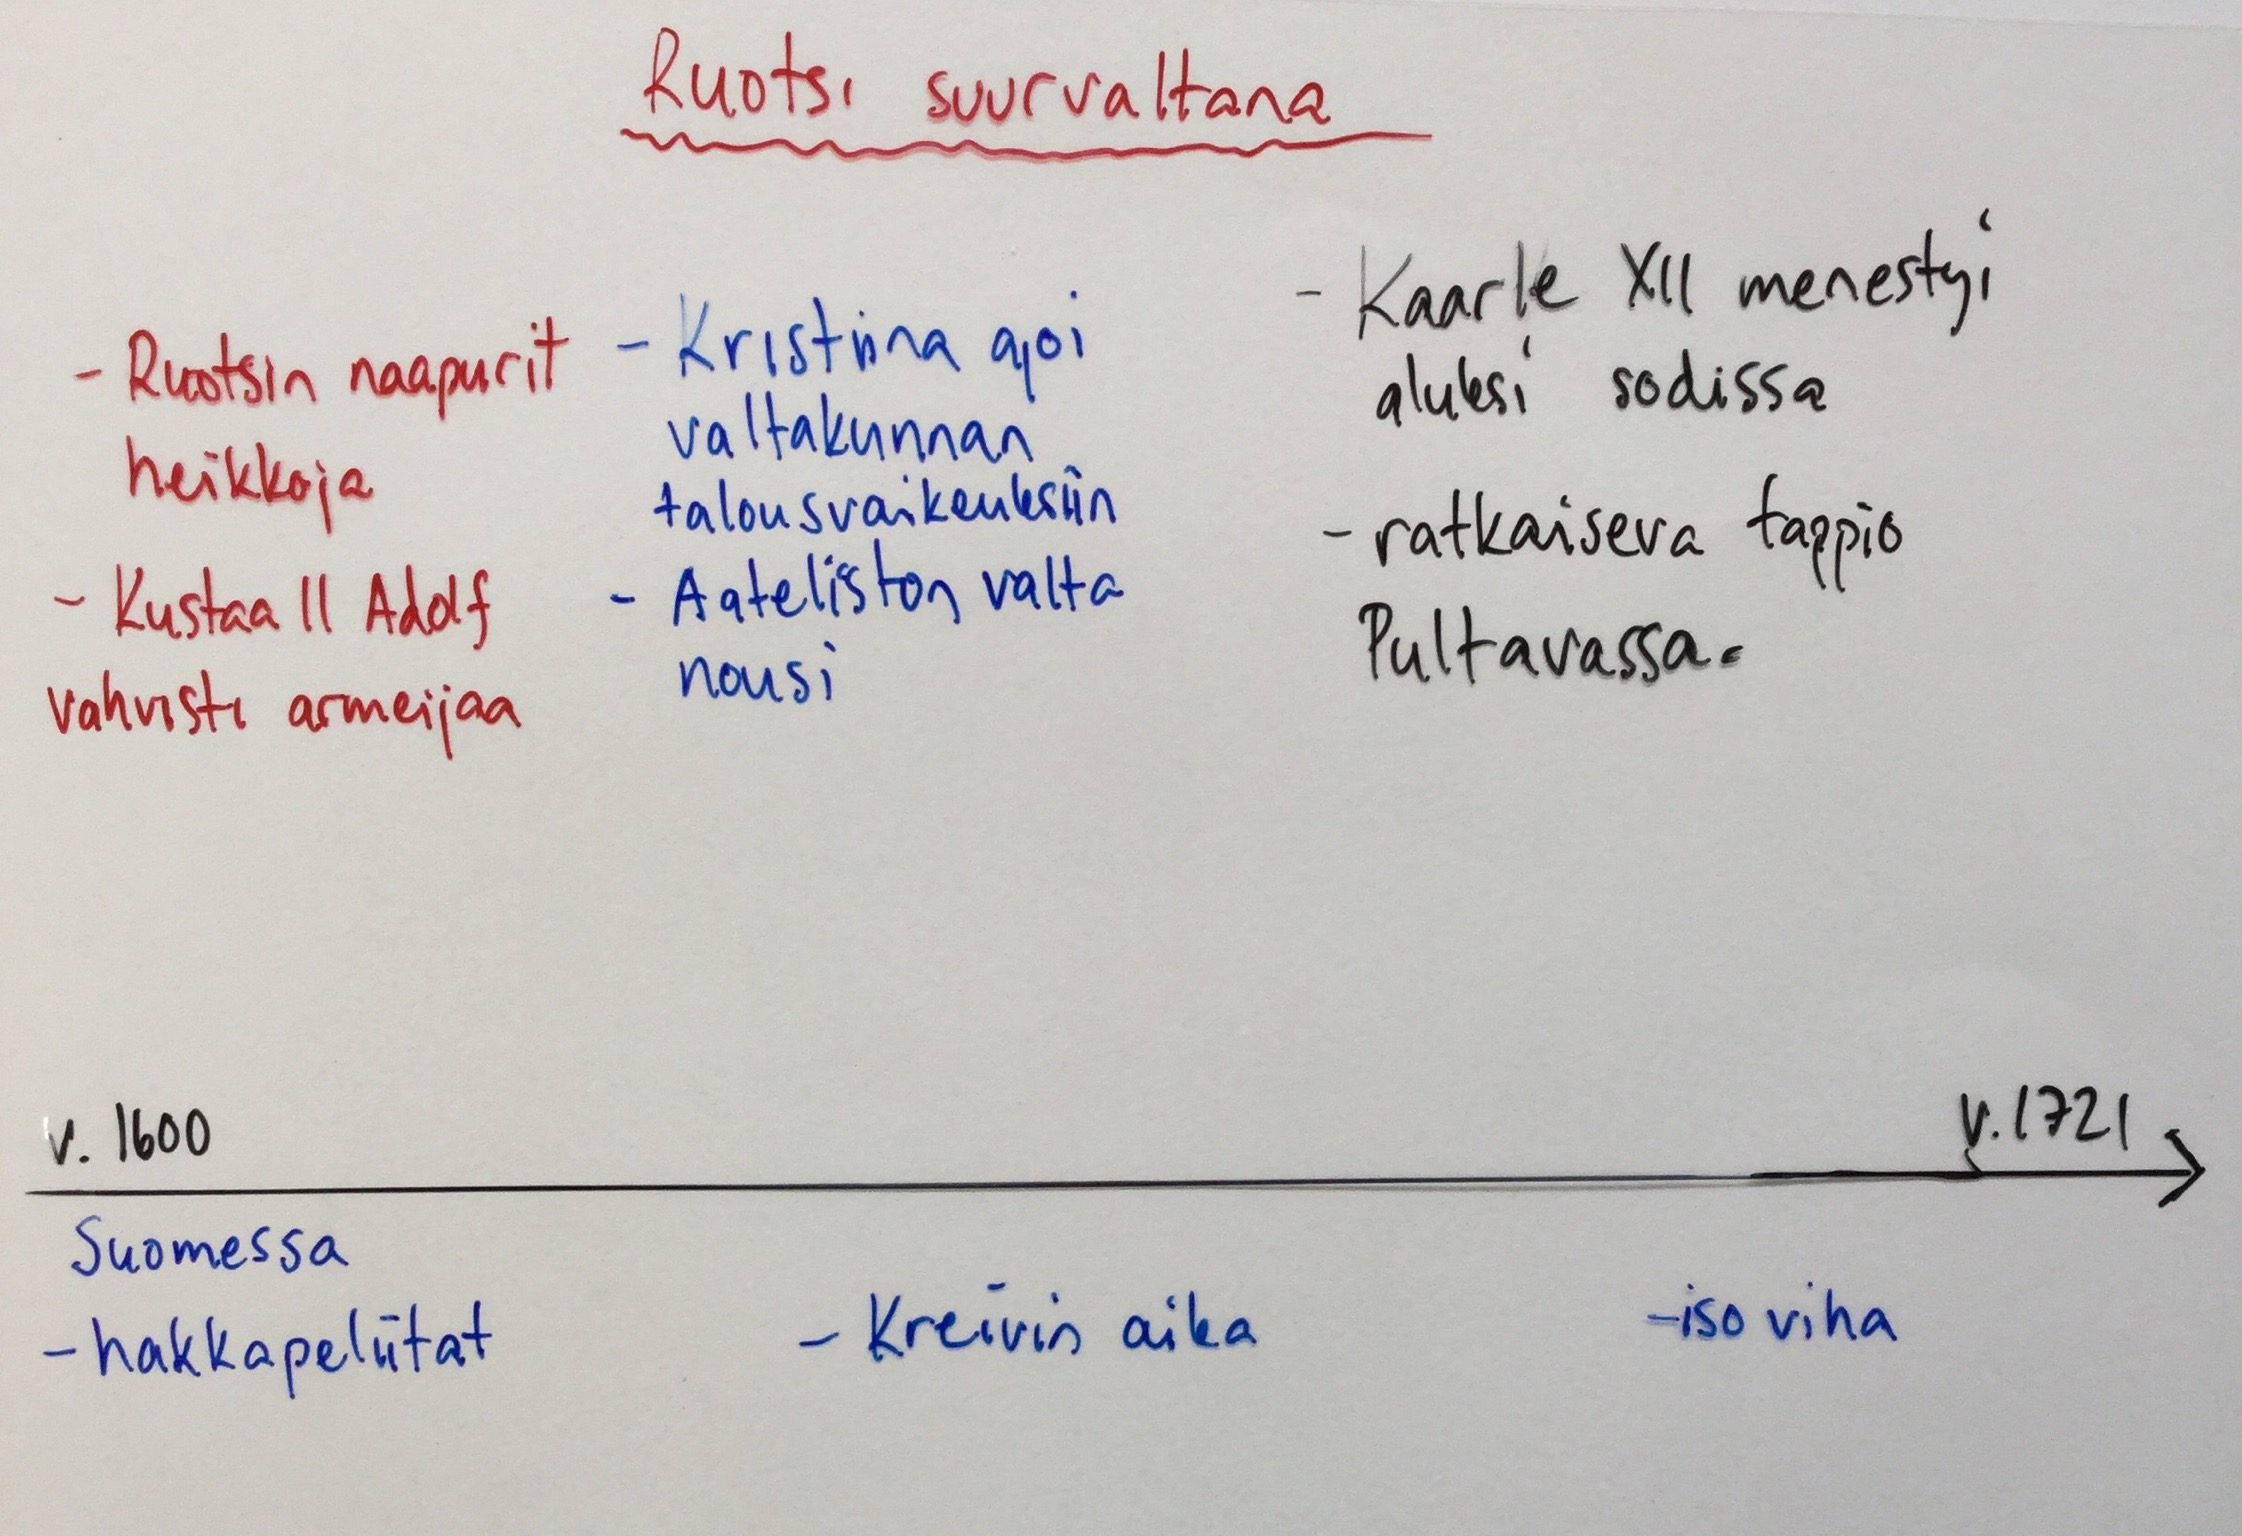 Ruotsi suurvaltana
- Ruotsin naapurit
heikkoja
- Kustaa II Adolf
vahvisti armeijaa
- Kristiina ajoi
valtakunnan
talousvaikeuksiin
- Aateliston valta
nousi
- Kaarle XII menestyi
aluksi sodissa
- ratkaiseva tappio
Pultavassa.
v. 1600
v. 1721
Suomessa
- hakkapeliitat
- Kreivin aika
- iso viha